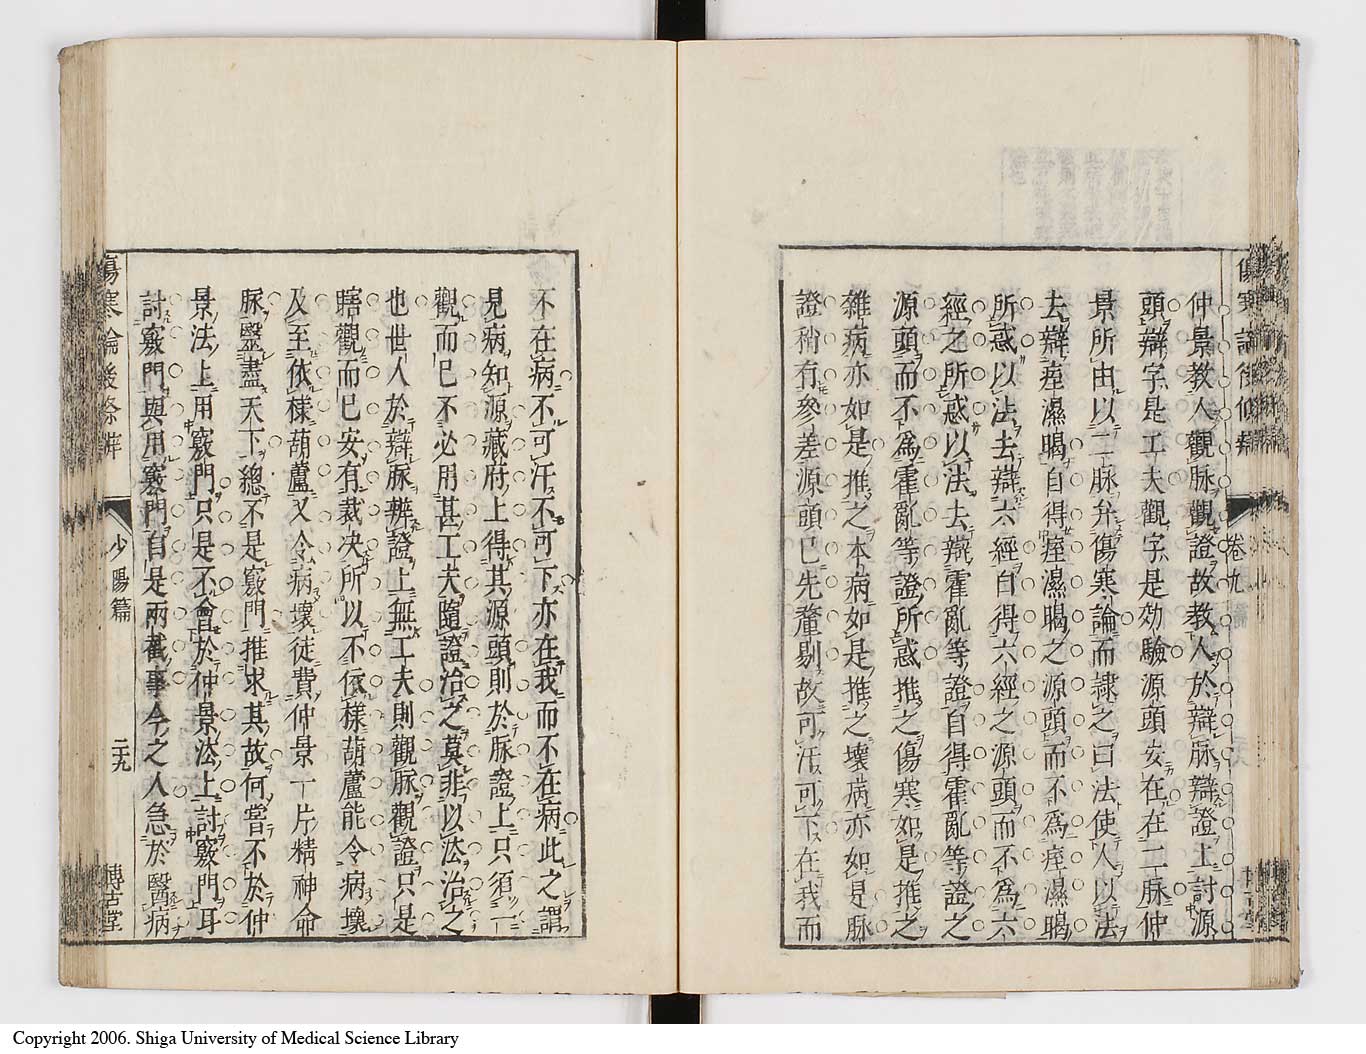 仲景教人觀脉觀證故教人於辯脉辯證上討源
頭辯字是工夫觀字是効驗源頭安在在二脉仲
景所由以二脉弁傷寒論而隷之曰法使人以法
去辯痓濕暍自得痓濕暍之源頭而不為痓濕暍
所惑以法去辯六經自得六經之源頭而不為六
經之所惑以法去辯霍亂等證自得霍亂等證之
源頭而不為霍亂等證所惑推之傷寒如是推之
雜病亦如是推之本病如是推之壞病亦如是脉
證稍有參差源頭已先釐剔故可汗可下在我而
卷九
不在病不可汗不可下亦在我而不在病此之謂
見病知源藏府上得其源頭則於脉證上只須一
觀而已不必用甚工夫隨證治之莫非以法治之
也世人於辯脉辨證上無工夫則觀脉觀證只是
瞎觀而已安有裁决所以不依樣葫蘆能令病壞
及至依樣葫蘆又令病壞徒費仲景一片精神命
脉嬰盡天下總不是竅門推求其故何嘗不於仲
景法上用竅門只是不會於仲景法上討竅門耳
討竅門與用竅門自是兩截事今之人急於醫病
傷寒論後條辨
少陽篇
二十九
博古堂
Copyright 2006. Shiga University of Medical Science Library